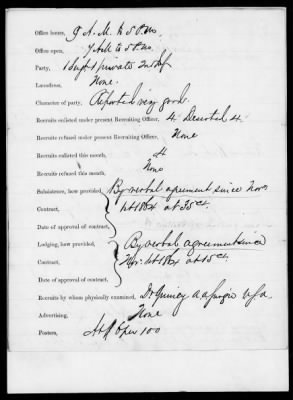 Office hours, 9 A.M. to 5 P.M.
Office open, 7 A.M. to 5 P.M.
Party, 1 Sergt 1 private
Laundress, None.
Character of party, Reported very good
Recruits enlisted under present Recruiting Officer, 4 Deserted 4
Recruits refused under present Recruiting Officer, None
Recruits enlisted this month,
Recruits refused this month, None
Subsistence, how provided, By verbal agreement since Novr
Contract, 1st 1864 at 35 cts.
Date of approval of contract,
Lodging, how provided, By verbal agreement since
Contract, 1st 1864 at 15 cts.
Date of approval of contract,
Recruits by whom physically examined, Dr Quincy
Advertising, None
Posters, 100